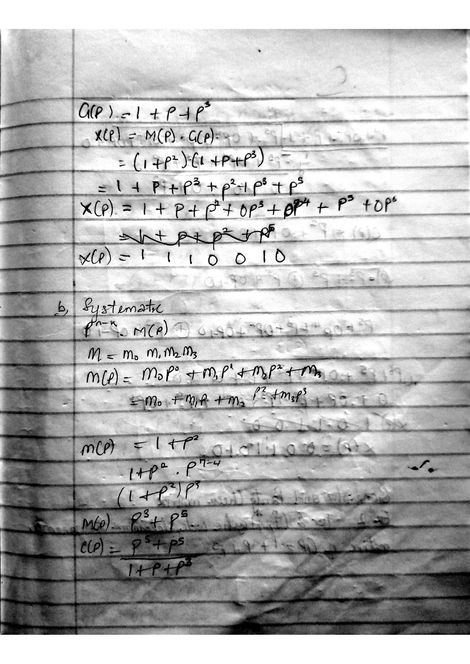 G(p) = 1 + p + p³
x(p) = M(p) . G(p).
= (1+p²).(1 + p+p³)
= 1 + p + p³ + p² + p³ + p⁵
x(p) = 1 + p + p² + 0p³ + 0p⁴ + p⁵ + 0p⁶
= 1 + p + p² + p⁵
x(p) = 1 1 1 0 0 1 0
b, Systematic
pⁿ⁻ᵏ . M(p)
M = m₀ m₁ m₂ m₃
m(p) = m₀p⁰ + m₁p¹ + m₂p² + m₃
= m₀ + m₁p + m₂ p² + m₃p³
m(p) = 1 + p²
1+p² . p⁷⁻⁴
(1+p²)p³
M(p). p³ + p⁵
c(p) = p³ + p⁵
1 + p + p³